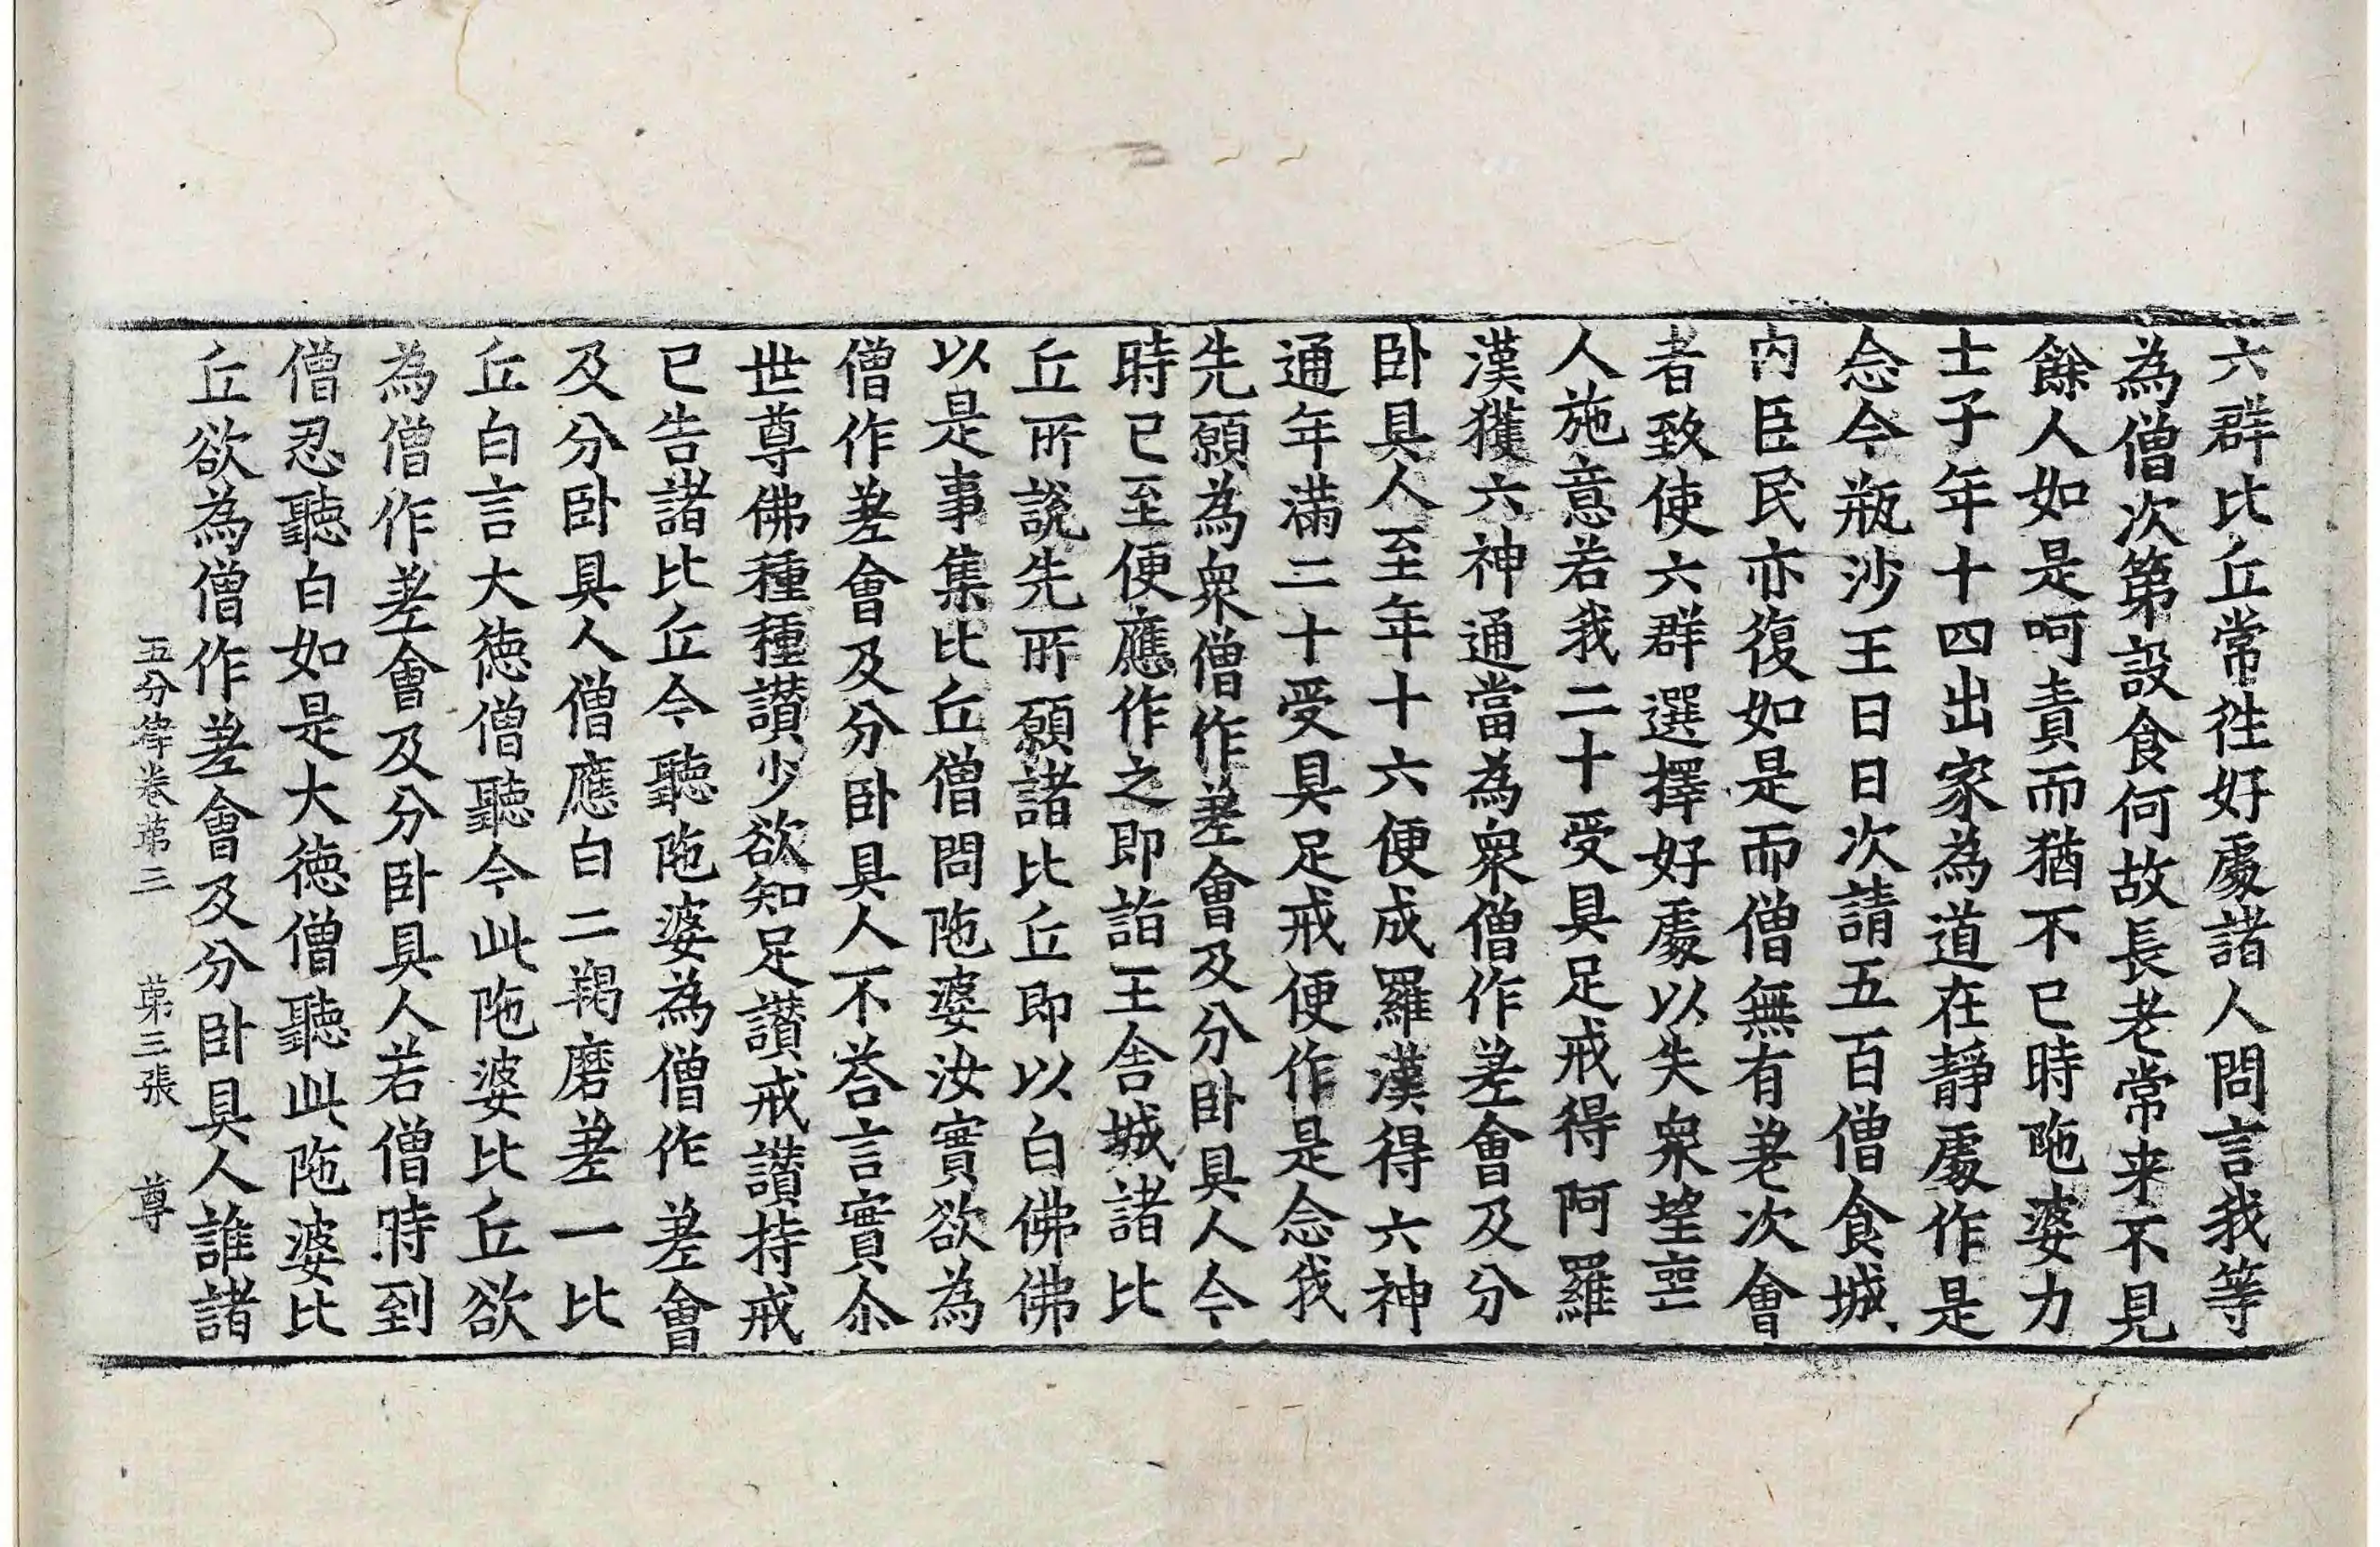 六群比丘常往好處諸人問言我等
為僧次第設食何故長老常来不見
餘人如是呵責而猶不已時陁婆力
士子年十四出家為道在靜處作是
念今瓶沙王日日次請五百僧食城
内臣民亦復如是而僧無有差次會
者致使六群選擇好處以失衆望
人施意若我二十受具足戒得阿羅
漢獲六神通當為衆僧作差會及分
卧具人至年十六便成羅漢得六神
通年滿二十受具足戒便作是念我
先願為衆僧作差會及分卧具人今
時已至便應作之即詣王舍城諸比
丘所說先所願諸比丘即以白佛佛
以是事集比丘僧問陁婆汝實欲為
僧作差會及分卧具人不荅言實尒
世尊佛種種讃少欲知足讃戒讃持戒
已告諸比丘今聽陁婆為僧作差會
及分卧具人僧應白二羯磨差一比
丘白言大德僧聽今此陁婆比丘欲
為僧作差會及分卧具人若僧時到
僧忍聽白如是大德僧聽此陁婆比
丘欲為僧作差會及分卧具人誰諸
五分律卷苐三 苐三張 尊